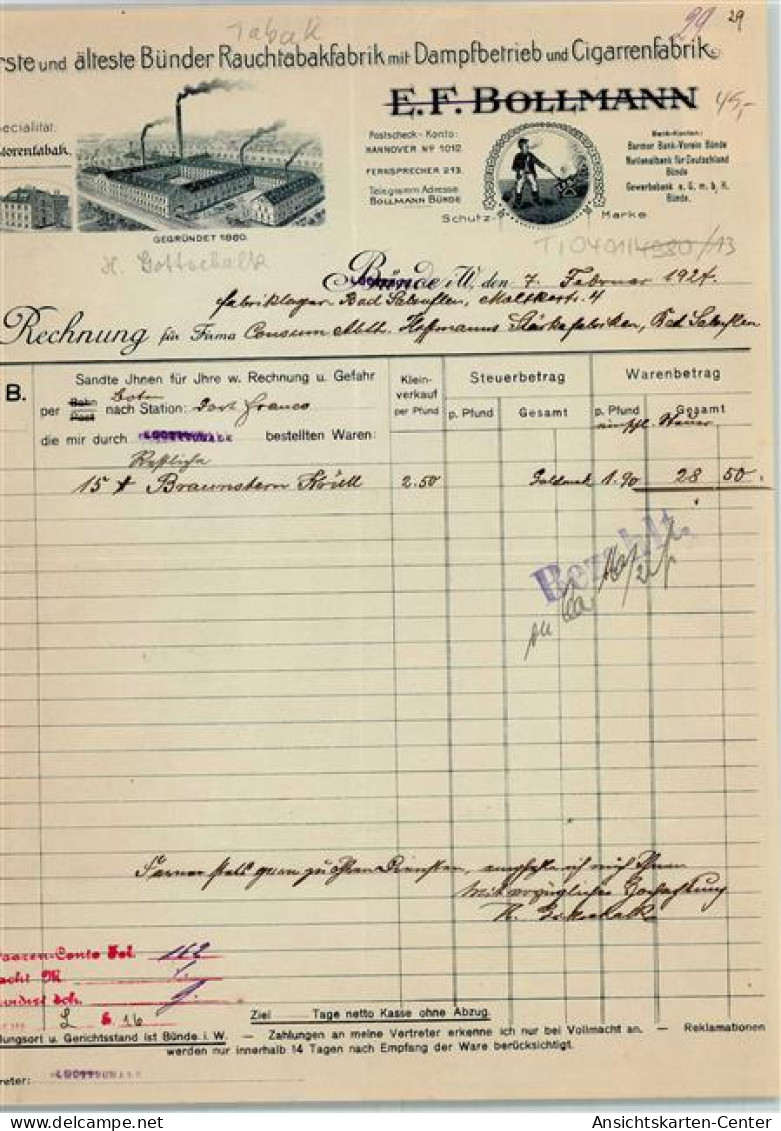 Tabak
29 29
rste und älteste Bünder Rauchtabakfabrik mit Dampfbetrieb und Cigarrenfabrik
E. F. BOLLMANN 45,-
pecialität:
storentabak.
Postscheck-Konto:
HANNOVER No 1012.
FERNSPRECHER 213.
Telegramm Adresse
BOLLMANN BÜNDE
Bank-Konten:
Barmer Bank-Verein Bünde
Nationalbank für Deutschland
Bünde
Gewerbebank e. G. m. b. H.
Bünde.
Schutz Marke
GEGRÜNDET 1860.
H. Gottschalk
Bünde i/W, den 7. Februar 1924.
Fabriklager Bad Salzuflen, Moltkestr. 4
Rechnung für Firma Consum Abtl. Hoffmanns Stärkefabriken, Bad Salzuflen
B.
Sandte Jhnen für Jhre w. Rechnung u. Gefahr
per Bahn Post Boten nach Station: Dort franco
die mir durch L.GOTTSCHALK bestellten Waren:
Klein-
verkauf
per Pfund
Steuerbetrag
p. Pfund Gesamt
Warenbetrag
p. Pfund Gesamt
einschl. Steuer
15 Braunstern Krüll 2.50 Goldmark 1.90 28 50
Bezahlt
Ferner stets gern zu Ihren Diensten, empfehle ich mich Ihnen
Mit vorzüglicher Hochachtung
H. Gottschalk
Waaren-Conto Fol. 162
acht M
L 6. 16
Ziel Tage netto Kasse ohne Abzug.
lungsort u. Gerichtsstand ist Bünde i. W. — Zahlungen an meine Vertreter erkenne ich nur bei Vollmacht an. — Reklamationen
werden nur innerhalb 14 Tagen nach Empfang der Ware berücksichtigt.
reter: L.GOTTSCHALK
Ansichtskarten-Center